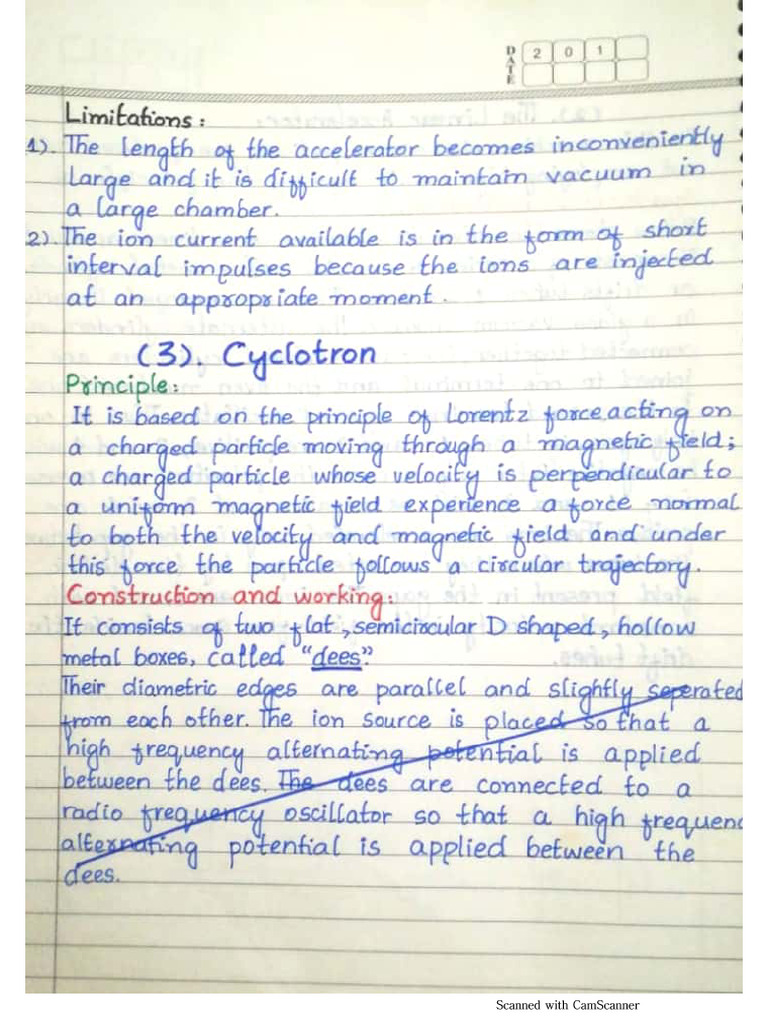 DATE 2 0 1
Limitations:
1). The length of the accelerator becomes inconveniently
large and it is difficult to maintain vacuum in
a large chamber.
2). The ion current available is in the form of short
interval impulses because the ions are injected
at an appropriate moment.
(3), Cyclotron
Principle:
It is based on the principle of Lorentz force acting on
a charged particle moving through a magnetic field;
a charged particle whose velocity is perpendicular to
a uniform magnetic field experience a force normal
to both the velocity and magnetic field and under
this force the particle follows a circular trajectory.
Construction and working:
It consists of two flat, semicircular D shaped, hollow
metal boxes, called "dees".
Their diametric edges are parallel and slightly seperated
from each other. The ion source is placed so that a
high frequency alternating potential is applied
between the dees. The dees are connected to a
radio frequency oscillator so that a high frequenc
alternating potential is applied between the
dees.
Scanned with CamScanner